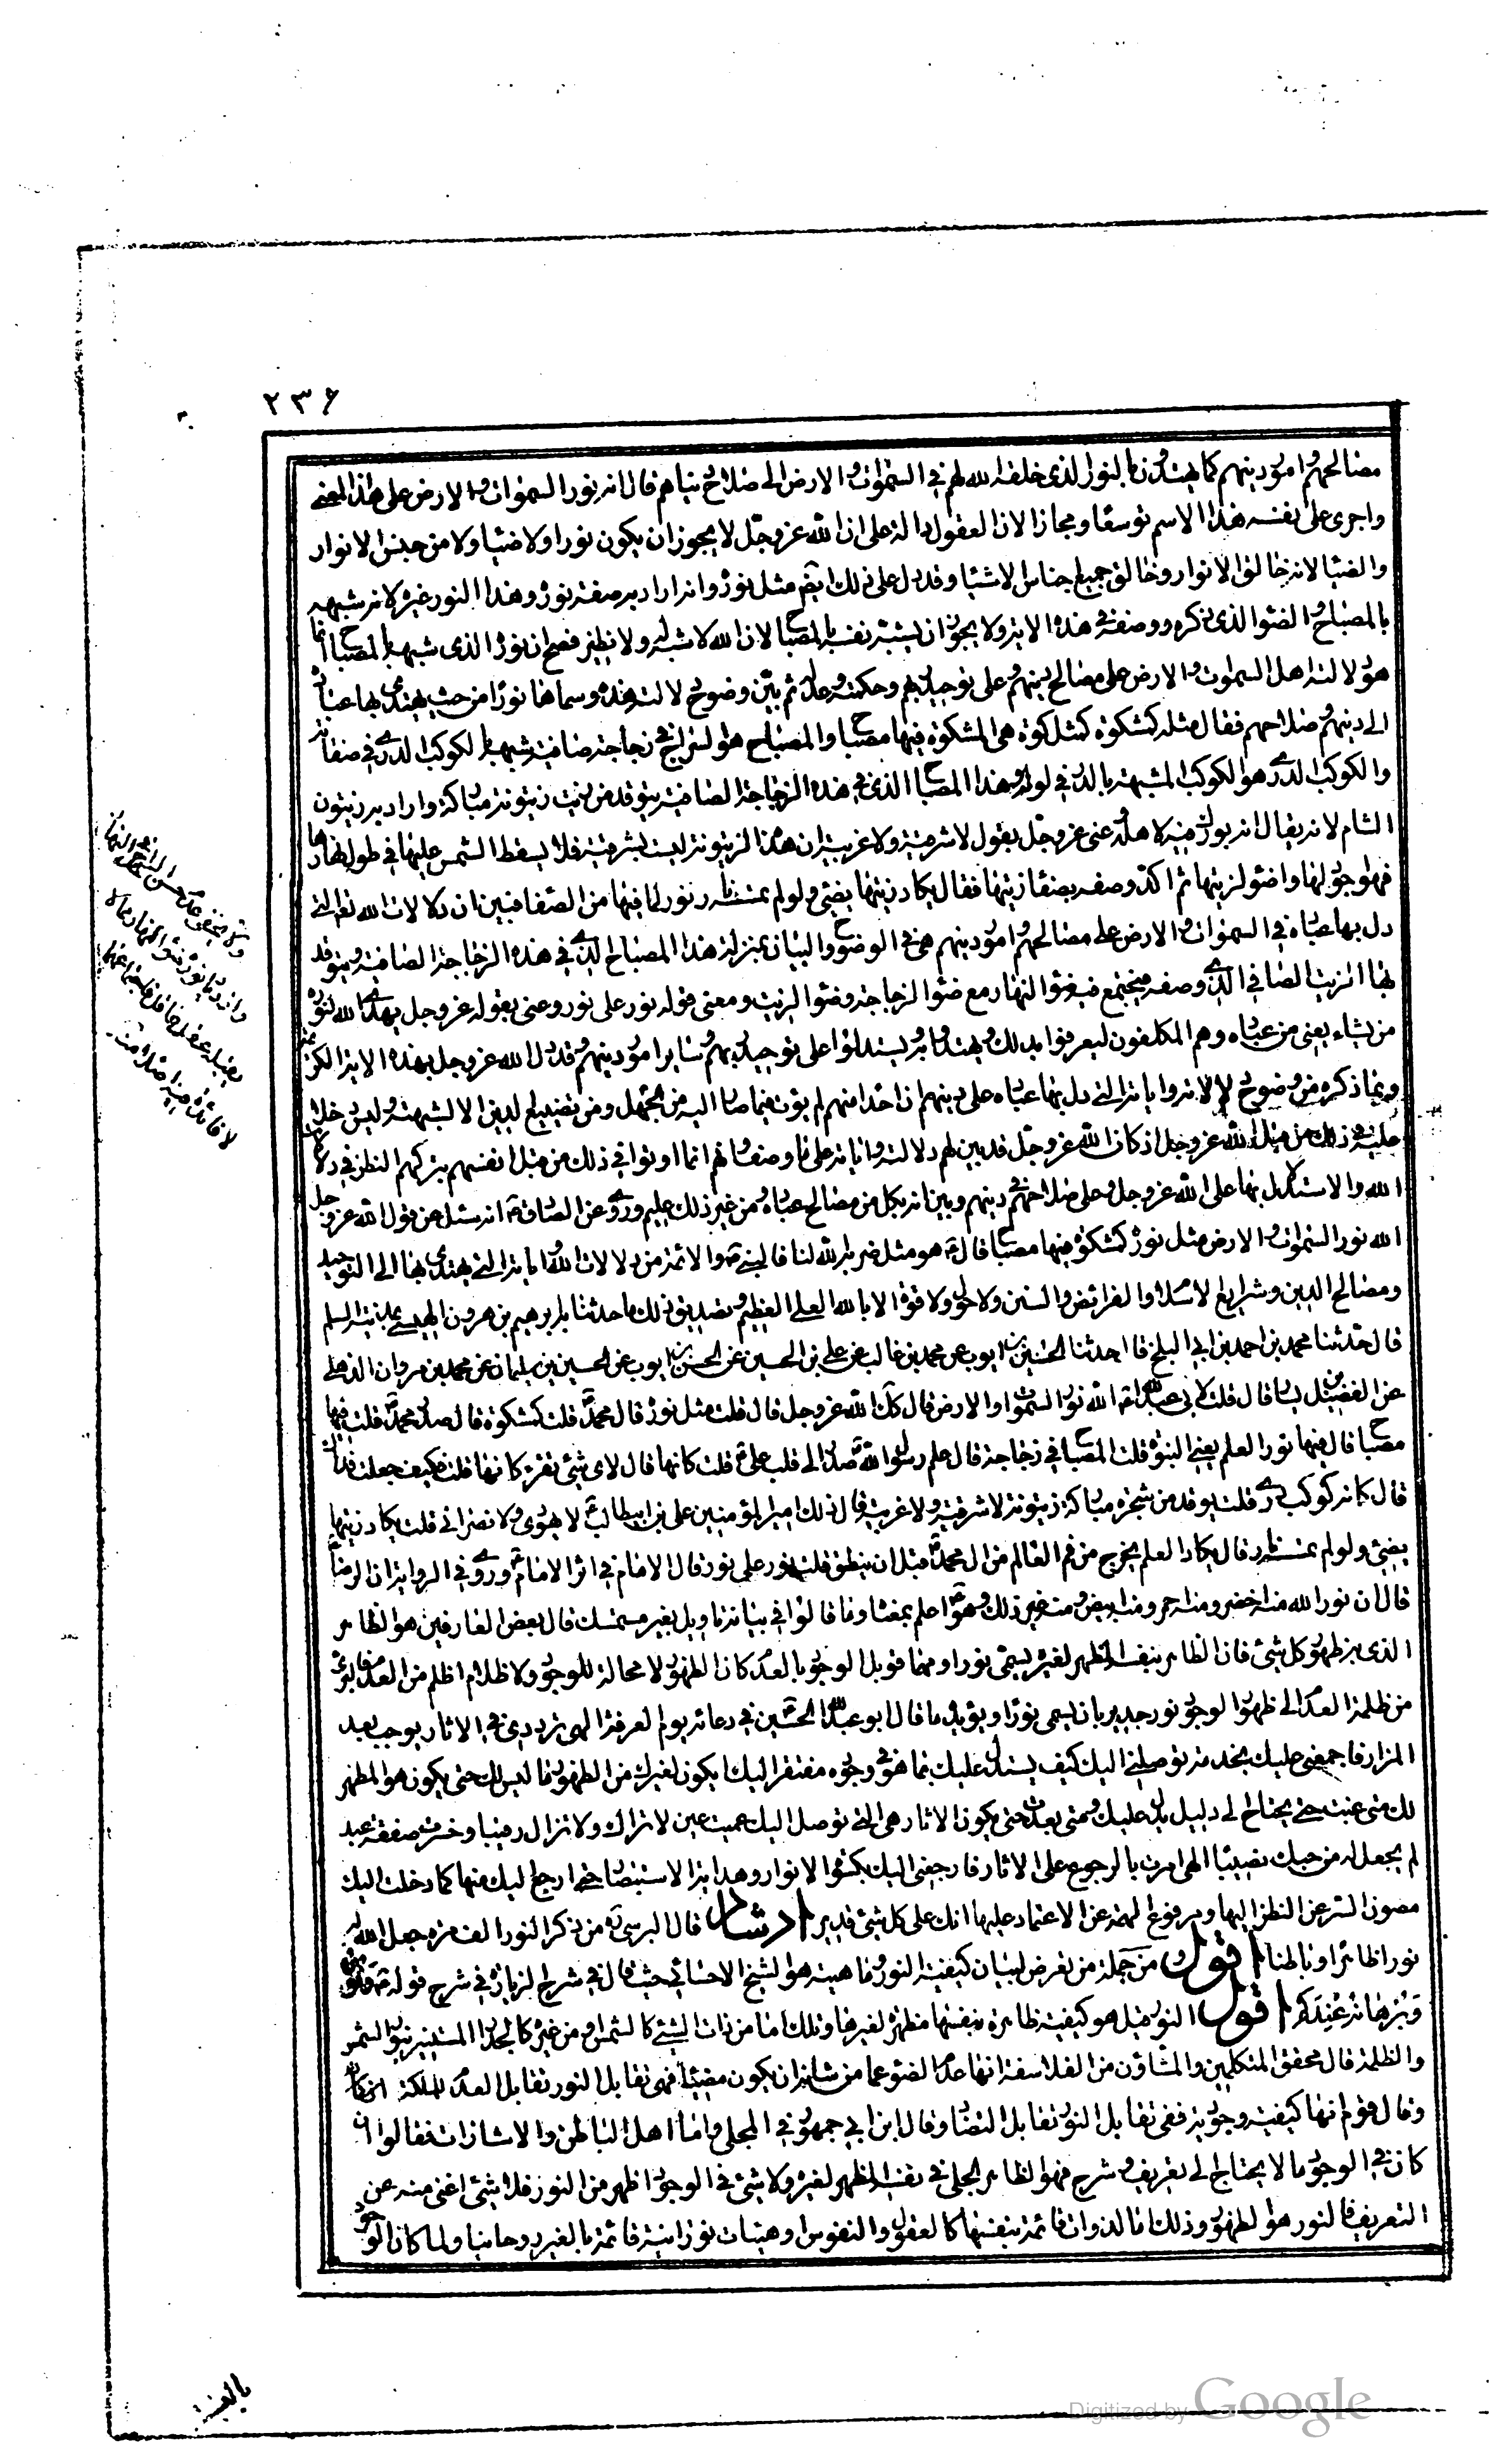 ٢٣۶
مصالحهم و امور دينهم كما يهتدون بالنور الذى خلقه الله لهم فى السموات و الارض الى صلاح دنياهم قال انه نور السموات و الارض على هذا المعنى
و اجرى على نفسه هذا الاسم توسعا و مجازا لان العقول دالة على ان الله عز و جل لا يجوز ان يكون نورا و لا ضياء و لا من جنس الانوار
و الضياء لانه خالق الانوار و خالق جميع اجناس الاشياء و قد دل على ذلك بقوله مثل نوره و انما اراد به صفة نوره و هذا النور غيره لانه شبهه
بالمصباح و الضوء الذى ذكره و وصفه فى هذه الاية و لا يجوز ان يشبه نفسه بالمصباح لان الله لا شبه له و لا نظير فصح ان نوره الذى شبهه بالمصباح انما
هو دلالته اهل السموات و الارض على مصالح دينهم و على توحيد ربهم و حكمته و عدله ثم بين وضوح دلالته هذه و سماها نورا من حيث يهتدى بها عباده
الى دينهم و صلاحهم فقال مثله كمشكوة كمثل كوة هى المشكوة فيها مصباح و المصباح هو السراج فى زجاجة صافية شبيهة بالكوكب الدرى فى صفائه
و الكوكب الدرى هو الكوكب المشبه بالدر فى لونه و هذا المصباح الذى فى هذه الزجاجة الصافية يتوقد من زيت زيتونة مباركة و اراد به زيتون
الشام لانه يقال انه بورك فيه لاهله عنى عز و جل بقوله لا شرقية و لا غربية ان هذه الزيتونة ليست بشرقية فلا يسقط الشمس عليها فى طول نهارها
فهو اجود لها و اضوء لزيتها ثم اكد وصفه بصفاء زيتها فقال يكاد زيتها يضئ و لو لم تمسسه نار نور لما فيها من الصفاء فبين ان دلالات الله تعالى التى
دل بها عباده فى السموات و الارض على مصالحهم و امور دينهم هى فى الوضوح و البيان بمنزلة هذا المصباح الذى فى هذه الزجاجة الصافية و يتوقد
بها الزيت الصافى الذى وصفه فيجتمع فيه ضوء النهار مع ضوء الزجاجة و ضوء الزيت و معنى قوله نور على نور و عنى بقوله عز و جل يهدى الله لنوره
من يشاء يعنى من عباده و هم المكلفون ليعرفوا بذلك و يهتدوا به و يستدلوا على توحيد ربهم و سائر امور دينهم و قد دل الله عز و جل بهذه الاية الكريمة
و بما ذكره من وضوح دلالاته و اياته التى دل بها عباده على دينهم ان احدا منهم لم يؤت فيما صار اليه من الجهل و من تضييع الدين الا لشبهة و لبس دخلا
عليه فى ذلك من قبل الله عز و جل اذ كان الله عز و جل قد بين لهم دلالته و اياته على ما وصف و انهم انما اوتوا فى ذلك من قبل انفسهم بتركهم النظر فى دلالات
الله و الاستدلال بها على الله عز و جل و على صلاحهم فى دينهم و بين انه بكل من مصالح عباده و من غير ذلك عليم و روى عن الصادق ع انه سئل عن قول الله عز و جل
الله نور السموات و الارض مثل نوره كمشكوة فيها مصباح قال ع هو مثل ضربه الله لنا فالنبى ص و الائمة من دلالات الله و اياته التى يهتدى بها الى التوحيد
و مصالح الدين و شرايع الاسلام و الفرائض و السنن و لا حول و لا قوة الا بالله العلى العظيم و تصديق ذلك ما حدثنا به ابرهيم بن هرون الهيسى بمدينة السلم
قال حدثنا محمد بن احمد بن ابى الثلج قال حدثنا الحسين بن ايوب عن محمد بن غالب عن على بن الحسين عن الحسن بن ايوب عن الحسين بن سليمان عن محمد بن مروان الذهلى
عن الفضيل بن يسار قال قلت لابى عبد الله ع الله نور السموات و الارض قال كذلك الله عز و جل قال قلت مثل نوره قال محمد ص قلت كمشكوة قال صدر محمد ص قلت فيها
مصباح قال فيها نور العلم يعنى النبوة قلت المصباح فى زجاجة قال علم رسول الله ص صدر الى قلب على ع قلت كانها قال لاى شئ تقرء كانها قلت فكيف جعلت فداك
قال كانه كوكب درى قلت يوقد من شجرة مباركة زيتونة لا شرقية و لا غربية قال ذلك امير المؤمنين على بن ابيطالب ع لا يهودى و لا نصرانى قلت يكاد زيتها
يضئ و لو لم تمسسه نار قال يكاد العلم يخرج من فم العالم من ال محمد ص قبل ان ينطق قلت نور على نور قال الامام فى اثر الامام ع و روى فى الرواية ان الرضا ع
قال ان نور الله منه اخضر و منه احمر و منه ابيض و منه غير ذلك و هو ع اعلم بمعناه و ما قالوا فى بيانه تاويل بغير مستمسك قال بعض العارفين هو الظاهر
الذى به ظهور كل شئ فان الظاهر بنفسه المظهر لغيره يسمى نورا و مهما قوبل الوجود بالعدم كان الظهور لا محالة للوجود و لا ظلام اظلم من العدم فالبرئ
من ظلمة العدم الى ظهور الوجود نور جدير بان يسمى نورا و يؤيده ما قال ابو عبد الله الحسين فى دعائه يوم العرفة الهى ترددى فى الاثار يوجب بعد
المزار فاجمعنى عليك بخدمة توصلنى اليك كيف يستدل عليك بما هو فى وجوده مفتقر اليك ايكون لغيرك من الظهور ما ليس لك حتى يكون هو المظهر
لك متى غبت حتى يحتاج الى دليل يدل عليك و متى بعدت حتى يكون الاثار هى التى توصل اليك عميت عين لا تراك و لا تزال رقيبا و خسرت صفقة عبد
لم يجعل له من حبك نصيبا الهى امرت بالرجوع على الاثار فارجعنى اليك بكسوة الانوار و هداية الاستبصار حتى ارجع اليك منها كما دخلت اليك
مصون السر عن النظر اليها و مرفوع الهمة عن الاعتماد عليها انك على كل شئ قدير ارشاد قال البرسى ره من ذكر النور الف مرة جعل الله له
نورا ظاهرا و باطنا اقول من جملة من تعرض لبيان كيفية النور و ماهيته هو الشيخ الاحسائى حيث قال فى شرح الزيارة فى شرح قوله ع و نوره
و برهانه عندكم اقول النور قيل هو كيفية ظاهرة بنفسها مظهرة لغيرها و تلك اما من ذات الشئ كالشمس او من غيره كالجدار المستنير بنور الشمس
و الظلمة قال محققوا المتكلمين و المشاؤن من الفلاسفة انها عدم الضوء عما من شانه ان يكون مضيئا فهى تقابل النور تقابل العدم للملكة
و قال قوم انها كيفية وجودية ففى تقابل النور تقابل التضاد و قال ابن ابى جمهور فى المجلى و اما اهل الباطن و الاشارات فقالوا ان
كان فى الوجود ما لا يحتاج الى تعريف و شرح فهو الظاهر الجلى فى نفسه المظهر لغيره و لا شئ فى الوجود اظهر من النور فلا شئ اغنى منه عن
التعريف فالنور هو الظهور و ذلك اما لذوات قائمة بنفسها كالعقول و النفوس او هيئات نورانية قائمة بالغير روحانيا و لما كان الوجود
بالنسبة